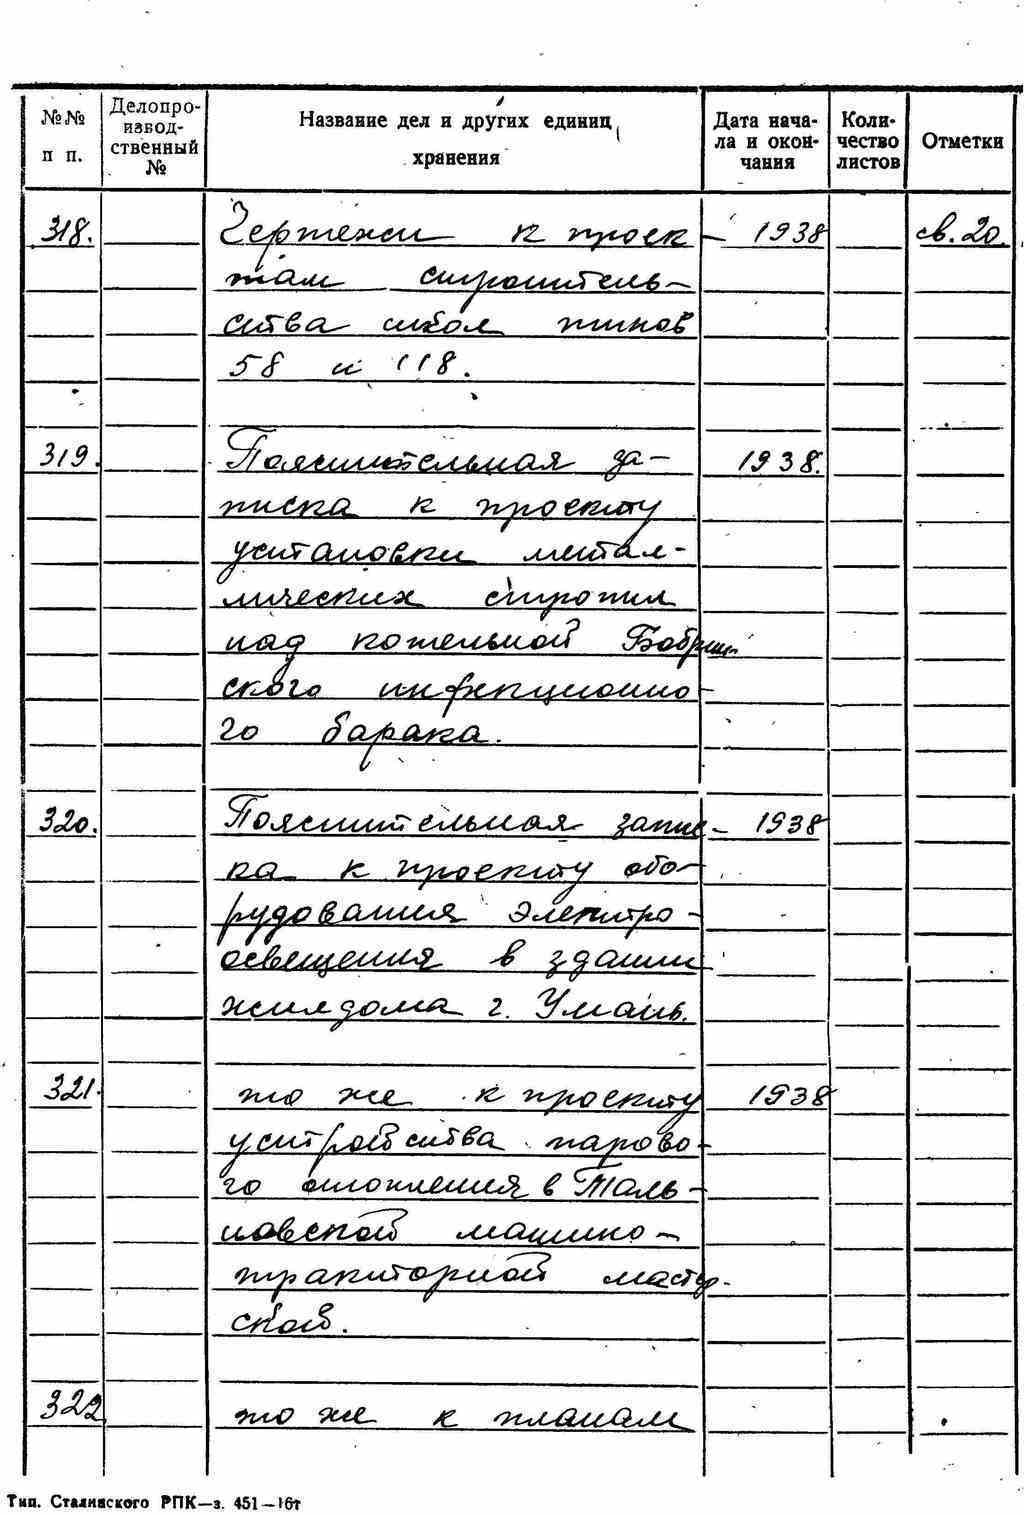 №№ п п.
Делопро-
извод-
ственный
№
Название дел и других единиц
хранения
Дата нача-
ла и окон-
чания
Коли-
чество
листов
Отметки
318. Чертежи к проек- 1938 св. 20.
там строитель-
ства школ типов
58 и 118.
319. Пояснительная за- 1938.
писка к проекту
установки метал-
лических стропил
над котельной Бобрин-
ского инфекционно-
го барака.
320. Пояснительная запис- 1938
ка к проекту обо-
рудования электро-
освещения в здании
жилдома г. Умань.
321. то же к проекту 1938
устройства парово-
го отопления в Таль-
новской машино-
тракторной мастер-
ской.
322 то же к планам
Тип. Сталинского РПК—з. 451—16т